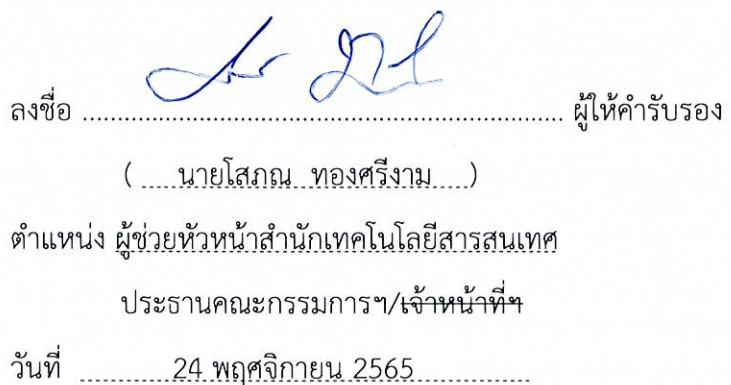 ลงชื่อ ................................................................ ผู้ให้คำรับรอง
( นายโสภณ ทองศรีงาม )
ตำแหน่ง ผู้ช่วยหัวหน้าสำนักเทคโนโลยีสารสนเทศ
ประธานคณะกรรมการฯ/เจ้าหน้าที่ฯ
วันที่ 24 พฤศจิกายน 2565